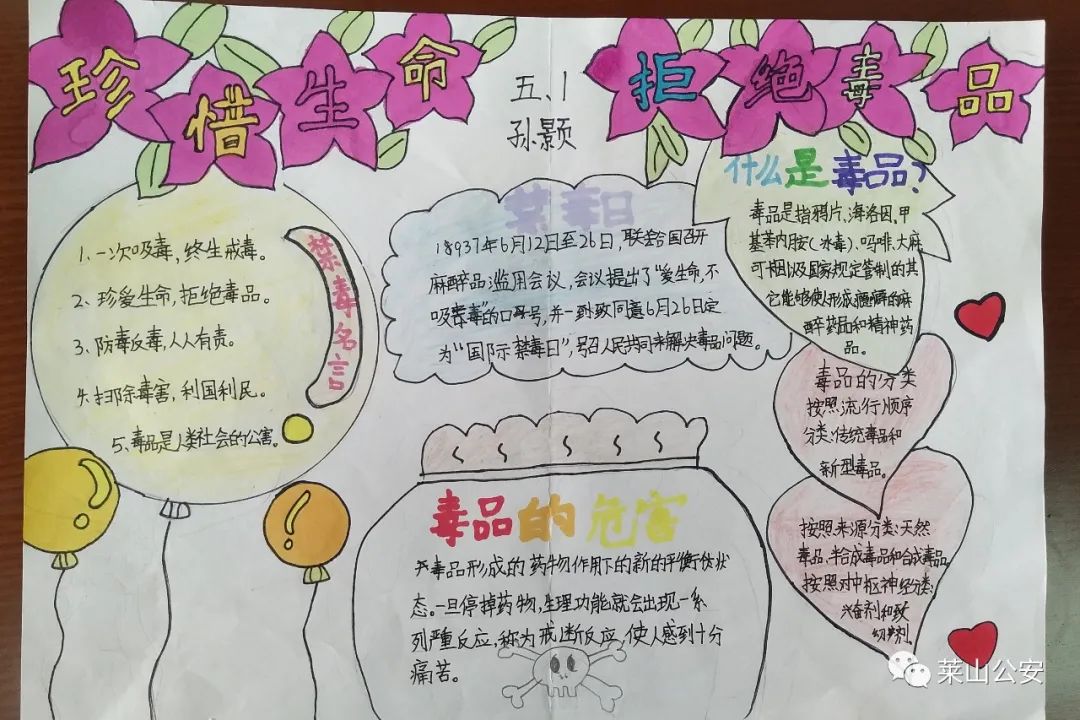 珍惜生命
五、1
孙颢
拒绝毒品
禁毒名言
1、一次吸毒,终生戒毒。
2、珍爱生命,拒绝毒品。
3、防毒反毒,人人有责。
4、扫除毒害,利国利民。
5、毒品是人类社会的公害。
禁毒日
18937年6月12日至26日,联合国召开
麻醉品滥用会议,会议提出了“爱生命,不
吸毒”的口号,并一致同意6月26日定
为“国际禁毒日”,号召人民共同来解决毒品问题。
什么是毒品?
毒品是指鸦片、海洛因、甲
基苯丙胺(冰毒)、吗啡、大麻
可卡因以及国家规定管制的其
它能够使人形成瘾癖的麻
醉药品和精神药
品。
毒品的分类
按照流行顺序
分类:传统毒品和
新型毒品。
按照来源分类:天然
毒品、半合成毒品和合成毒品
按照对中枢神经分类:
兴奋剂和致
幻剂。
毒品的危害
产毒品形成的药物作用下的新的平衡状
态。一旦停掉药物,生理功能就会出现一系
列严重反应,称为戒断反应,使人感到十分
痛苦。
莱山公安